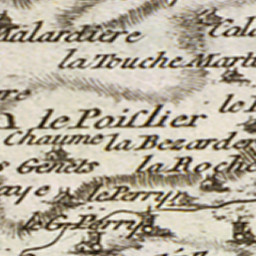 Malardiere
Cala
la Touche Marti
re
le Poislier
le B
Chaume
la Bezarder
s Genets
la Roche
aye
le Perry
le G. Perry